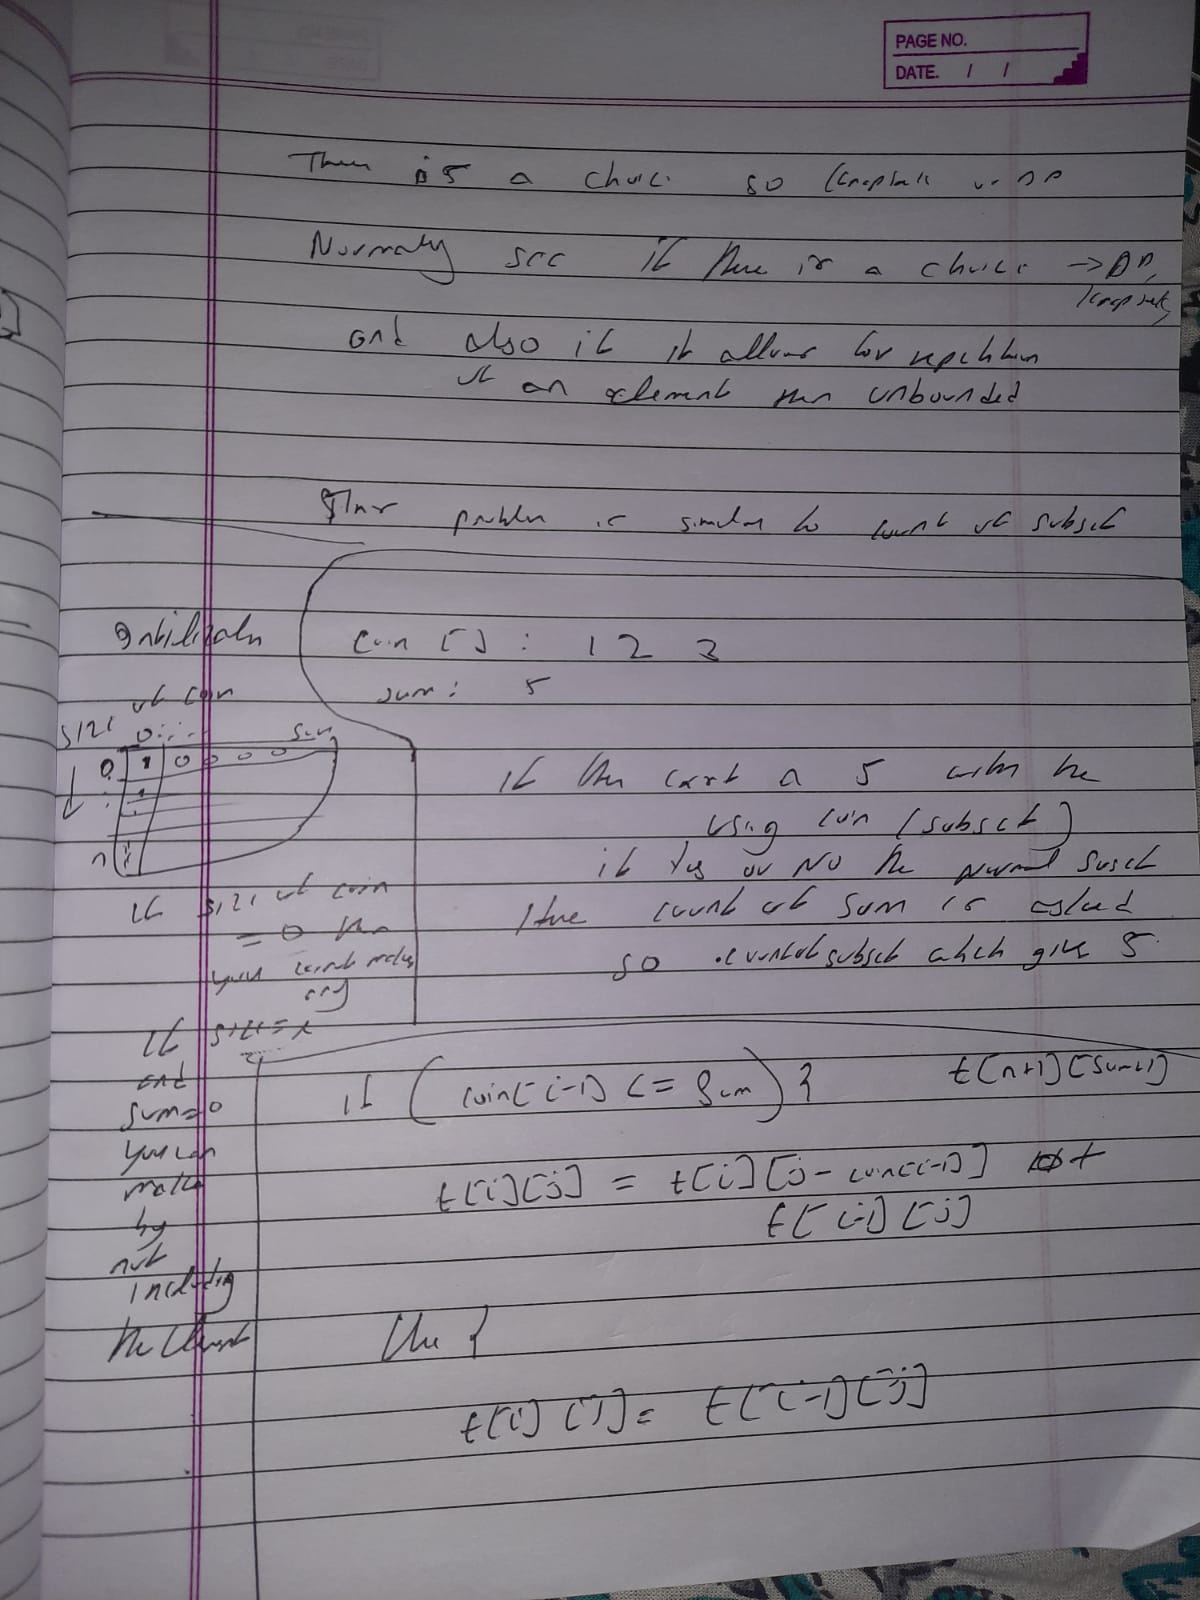 PAGE NO.
DATE. / /
There is a choice so knapsack or DP
Normaly see if there is a choice → DP,
knapsack
and also if it allows for repetition
of an element then unbounded
This problem is similar to count of subset
Coin [] : 1 2 3
sum : 5
Initilizatn
of coin
size 0 Sum
0 1 0 0 0 0
1
n 1
If size of coin
= 0 then
you cannot make
any
If size = x
and
sum = 0
you can
make
by
not
including
the element
If there exist a 5 with the
using coin (subset)
if Yes or NO the normal suset
Here count of sum is asked
so count of subset which give 5
if (coin[i-1] <= Sum) }
t[n+1][sum+1]
t[i][j] = t[i][j - coin[i-1]] +
t[i-1][j]
else {
t[i][j] = t[i-1][j]